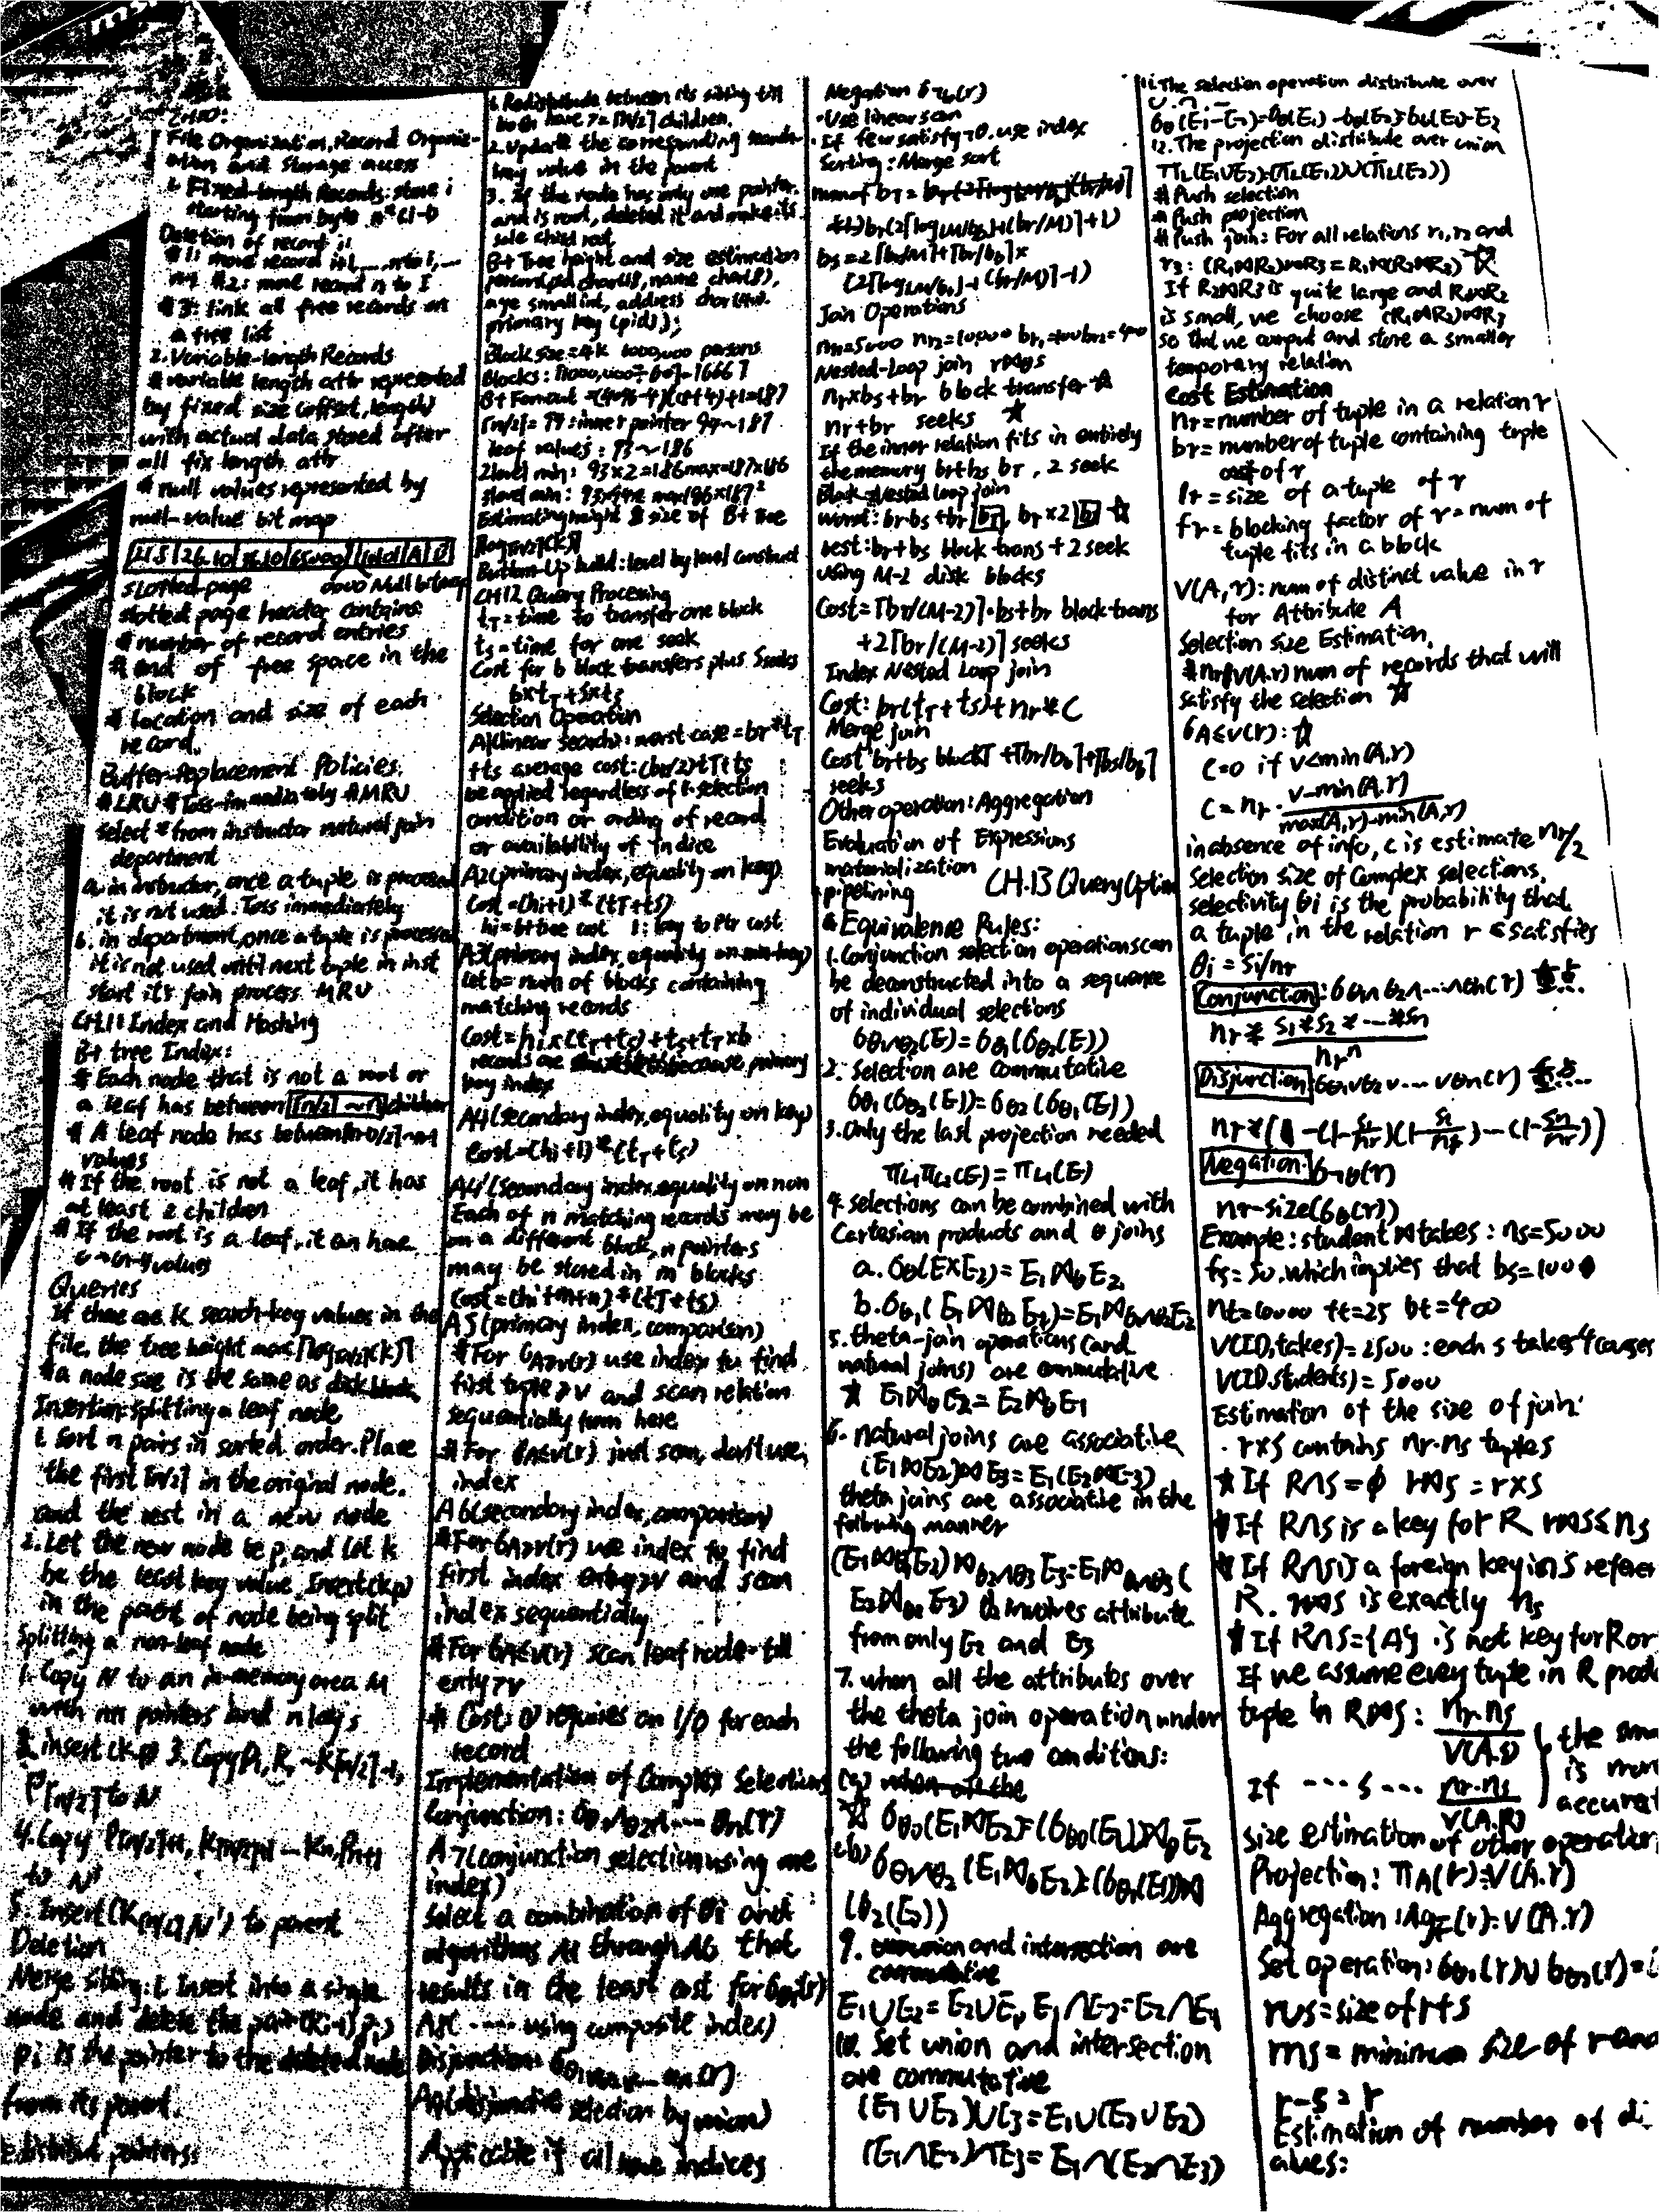 CH10:
File Organization, Record Organiz-
ation and Storage access
1. Fixed-length Records: store i
starting from byte n*(i-1)
Deletion of record i:
#1: move record i+1,...,n to i,...
n-1 #2: move record n to I
#3: link all free records on
a free list
2. Variable-length Records
# variable length attr represented
by fixed size (offset, length)
with actual data stored after
all fix-length attr
# null values represented by
null-value bit map
slotted-page 0000 Null bitmap
slotted page header contains:
# number of record entries
# end of free space in the
block
# location and size of each
record.
Buffer-Replacement Policies:
#LRU #Toss-immediately #MRU
select * from instructor natural join
department
a. in instructor, once a tuple is processed
it is not used: Toss immediately
b. in department, once a tuple is processed
it is not used until next tuple in inst
start its join process MRU
CH.11 Index and Hashing
B+ tree Index:
# Each node that is not a root or
a leaf has between [n/2] ~ n children
# A leaf node has between [(n-1)/2]~n-1
values
# If the root is not a leaf, it has
at least 2 children
# If the root is a leaf, it can have
0~(n-1) values
Queries
If there are K search-key values in the
file, the tree height max⌈log⌈n/2⌉(K)⌉
# a node size is the same as disk block
Insertion: splitting a leaf node
1. Sort n pairs in sorted order. Place
the first ⌈n/2⌉ in the original node.
and the rest in a new node
2. Let the new node be p, and let k
be the least key value. Insert (k,p)
in the parent of node being split
Splitting a non-leaf node
1. Copy N to an in-memory area M
with n+1 pointers and n keys
2. insert (k,p) 3. Copy P1, K1 ~ K⌈n/2⌉-1,
P⌈n/2⌉ to N
4. Copy P⌈n/2⌉+1, K⌈n/2⌉+1 ... Kn, Pn+1
to N'
5. Insert (K⌈n/2⌉, N') to parent
Deletion
Merge sibling: 1. Insert into a single
node and delete the pair (Ki-1, Pi)
Pi is the pointer to the deleted node
from its parent.
pointers
1. Redistribute between its sibling till
both have > ⌈n/2⌉ children.
2. Update the corresponding search-
key value in the parent
3. If the node has only one pointer.
and is root, deleted it and make its
sole child root
B+ Tree height and size estimation
person(pid char(18), name char(8),
age smallint, address char(40).
primary key (pid));
Block size=4K 1000,000 persons
Blocks: ⌈1000,000÷60⌉=16667
B+ Fanout =(4096-4)/(18+4)+1=187
⌈n/2⌉=94: inner pointer 94~187
leaf values: 93~186
2level min: 93×2=186 max=187×186
3level min: 93×94×2 max186×187²
Estimating height & size of B+ tree
⌈log⌈n/2⌉(K)⌉
Bottom-Up build: level by level construct
CH12 Query Processing
tT=time to transfer one block
ts=time for one seek
Cost for b block transfers plus S seeks
b×tT+S×ts
Selection Operation
A1(linear search): worst case=br*tT
+ts average cost: (br/2)tT+ts
be applied regardless of t. selection
condition or ording of record
or availability of Indice
A2(primary index, equality on key)
Cost=(hi+1)*(tT+ts)
hi=B+tree cost 1: key to Ptr cost
A3(primary index, equality on non-key)
let b= num of blocks containing
matching records
Cost=hi×(tT+ts)+ts+tT×b
records are because primary
key index
A4(secondary index, equality on key)
Cost=(hi+1)*(tT+ts)
A4'(secondary index, equality on non
Each of n matching records may be
on a different block, n pointers
may be stored in m blocks
Cost=(hi+m+n)*(tT+ts)
A5(primary index, comparison)
#For σA≥v(r) use index to find
first tuple≥v and scan relation
sequentially from here
#For σA≤v(r) just scan, don't use
index
A6(secondary index, comparison)
#For σA≥v(r) use index to find
first index entry≥v and scan
index sequentially
#For σA≤v(r) scan leaf node till
entry>v
# Cost: requires an I/O for each
record
Implementation of Complex Selections
Conjunction: σθ1∧θ2∧...θn(r)
A7(conjunction selection using one
index)
Select a combination of θi and
algorithms A1 through A6 that
results in the least cost for σθi(r)
A8( ---- using composite index)
Disjunction: σθ1∨...∨θn(r)
A9(disjunctive selection by union)
Applicable if all have indices
Negation σ¬θ(r)
·Use linear scan
·If few satisfy ¬θ. use index
Sorting: Merge sort
br(2⌈logM/bb⌉(br/M)⌉+1)
bs=2⌈br/M⌉+⌈br/bb⌉×
(2⌈logM/bb⌉(br/M)⌉-1)
Join Operations
nr1=5000 nr2=10000 br1=100 br2=400
Nested-Loop join r⋈θs
nr×bs+br block transfer ☆
nr+br seeks ☆
If the inner relation fits in entirely
the memory br+bs br, 2 seek
Block Nested loop join
worst: br·bs+br br×2 ☆
best: br+bs block trans + 2 seek
using M-2 disk blocks
Cost=⌈br/(M-2)⌉·bs+br block trans
+2⌈br/(M-2)⌉ seeks
Index Nested Loop join
Cost: br(tT+ts)+nr*C
Merge join
Cost br+bs blockT+⌈br/bb⌉+⌈bs/bb⌉
seeks
Other operation: Aggregation
Evaluation of Expressions
materialization
pipelining CH.13 Query Optim
# Equivalence Rules:
1. Conjunction selection operations can
be deconstructed into a sequence
of individual selections
σθ1∧θ2(E)=σθ1(σθ2(E))
2. Selection are commutative
σθ1(σθ2(E))=σθ2(σθ1(E))
3. Only the last projection needed
πL1πL2(E)=πL1(E)
4. selections can be combined with
Cartesian products and θ joins
a. σθ(E×E2)=E1⋈θE2
b. σθ1(E1⋈θ2E2)=E1⋈θ1∧θ2E2
5. theta-join operations (and
natural joins) are commutative
* E1⋈θE2=E2⋈θE1
6. natural joins are associative
(E1⋈E2)⋈E3=E1(E2⋈E3)
theta joins are associative in the
following manner
(E1⋈θ1E2)⋈θ2∧θ3E3=E1⋈θ1∧θ3(
E2⋈θ2E3) θ2 involves attribute
from only E2 and E3
7. when all the attributes over
the theta join operation under
the following two conditions:
(a) when all the
☆ σθ0(E1⋈E2)=(σθ0(E1))⋈θE2
(b) σθ1∧θ2(E1⋈θE2)=(σθ1(E1))⋈
(θ2(E2))
9. union and intersection are
commutative
E1∪E2=E2∪E1, E1∩E2=E2∩E1
10. Set union and intersection
are commutative
(E1∪E2)∪E3=E1∪(E2∪E2)
(E1∩E2)∩E3=E1∩(E2∩E3)
11. The selection operation distribute over
∪.∩.-
σθ(E1-E2)=σθ(E1)-σθ(E2)=σθ(E1)-E2
12. The projection distribute over union
πL(E1∪E2)=(πL(E1))∪(πL(E2))
# Push selection
# Push projection
# Push join: For all relations r1,r2 and
r3: (R1⋈R2)⋈R3=R1⋈(R2⋈R3) ☆
If R2⋈R3 is quite large and R1⋈R2
is small, we choose (R1⋈R2)⋈R3
so that we comput and store a smaller
temporary relation
Cost Estimation
nr=number of tuple in a relation r
br=number of tuple containing tuple
of r
lr=size of a tuple of r
fr=blocking factor of r=num of
tuple fits in a block
V(A,r): num of distinct value in r
for Attribute A
Selection size Estimation.
#nr/V(A,r) num of records that will
satisfy the selection ☆
σA≤v(r): ☆
C=0 if v<min(A,r)
C=nr·v-min(A,r)/max(A,r)-min(A,r)
in absence of info, c is estimate nr/2
Selection size of Complex selections.
selectivity θi is the probability that
a tuple in the relation r satisfies
θi=Si/nr
Conjunction: σθ1∧θ2∧...∧θn(r)
nr * S1*S2*...*Sn/nrⁿ
Disjunction: σθ1∨θ2∨...∨θn(r)
nr*(1-(1-S1/nr)(1-S1/nr)...(1-Sn/nr))
Negation: σ¬θ(r)
nr-size(σθ(r))
Example: student⋈takes: ns=5000
fs=50. which implies that bs=100
nt=10000 ft=25 bt=400
V(ID,takes)=2500: each s takes 4 courses
V(ID,students)=5000
Estimation of the size of join:
·r×s contains nr·ns tuples
* If R∩S=φ r⋈s=r×s
# If R∩S is a key for R r⋈s≤ns
# If R∩S is a foreign key in S refere
R. r⋈s is exactly ns
# If R∩S={A} is not key for R or
If we assume every tuple in R prod
tuple in R⋈S: nr.ns/V(A.S) the sma
If ---S--- nr.ns/V(A.R) is mor
accurat
size estimation of other operation
Projection: πA(r)=V(A.r)
Aggregation: AgF(r)=V(A.r)
Set operation: σθ1(r)∪σθ2(r)=
r∪s=size of r+s
r∩s=minimum size of r and
r-s=r
Estimation of number of di
alues: